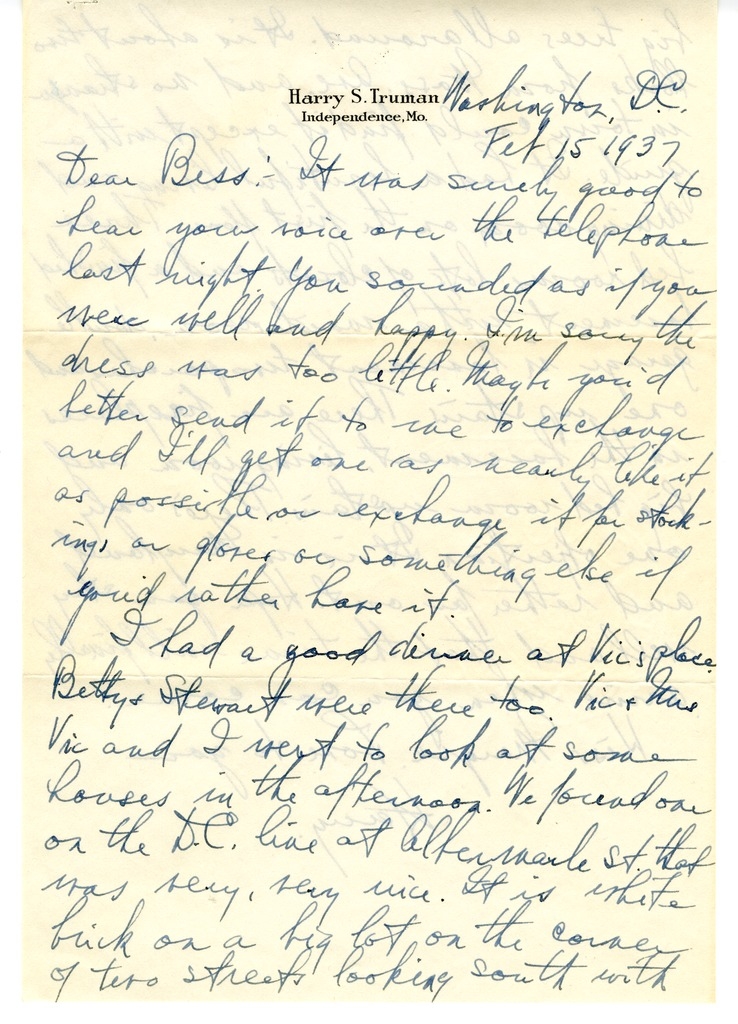 Harry S. Truman
Independence, Mo.
Washington, D.C.
Feb 15 1937
Dear Bess:- It was surely good to
hear your voice over the telephone
last night. You sounded as if you
were well and happy. I'm sorry the
dress was too little. Maybe you'd
better send it to me to exchange
and I'll get one as nearly like it
as possible or exchange it for stock-
ings or gloves or something else if
you'd rather have it.
I had a good dinner at Vic's place.
Betty & Stewart were there too. Vic & Mrs
Vic and I went to look at some
houses in the afternoon. We found one
on the D.C. line at Albermarle St. that
was very, very nice. It is white
brick on a big lot on the corner
of two streets looking south with